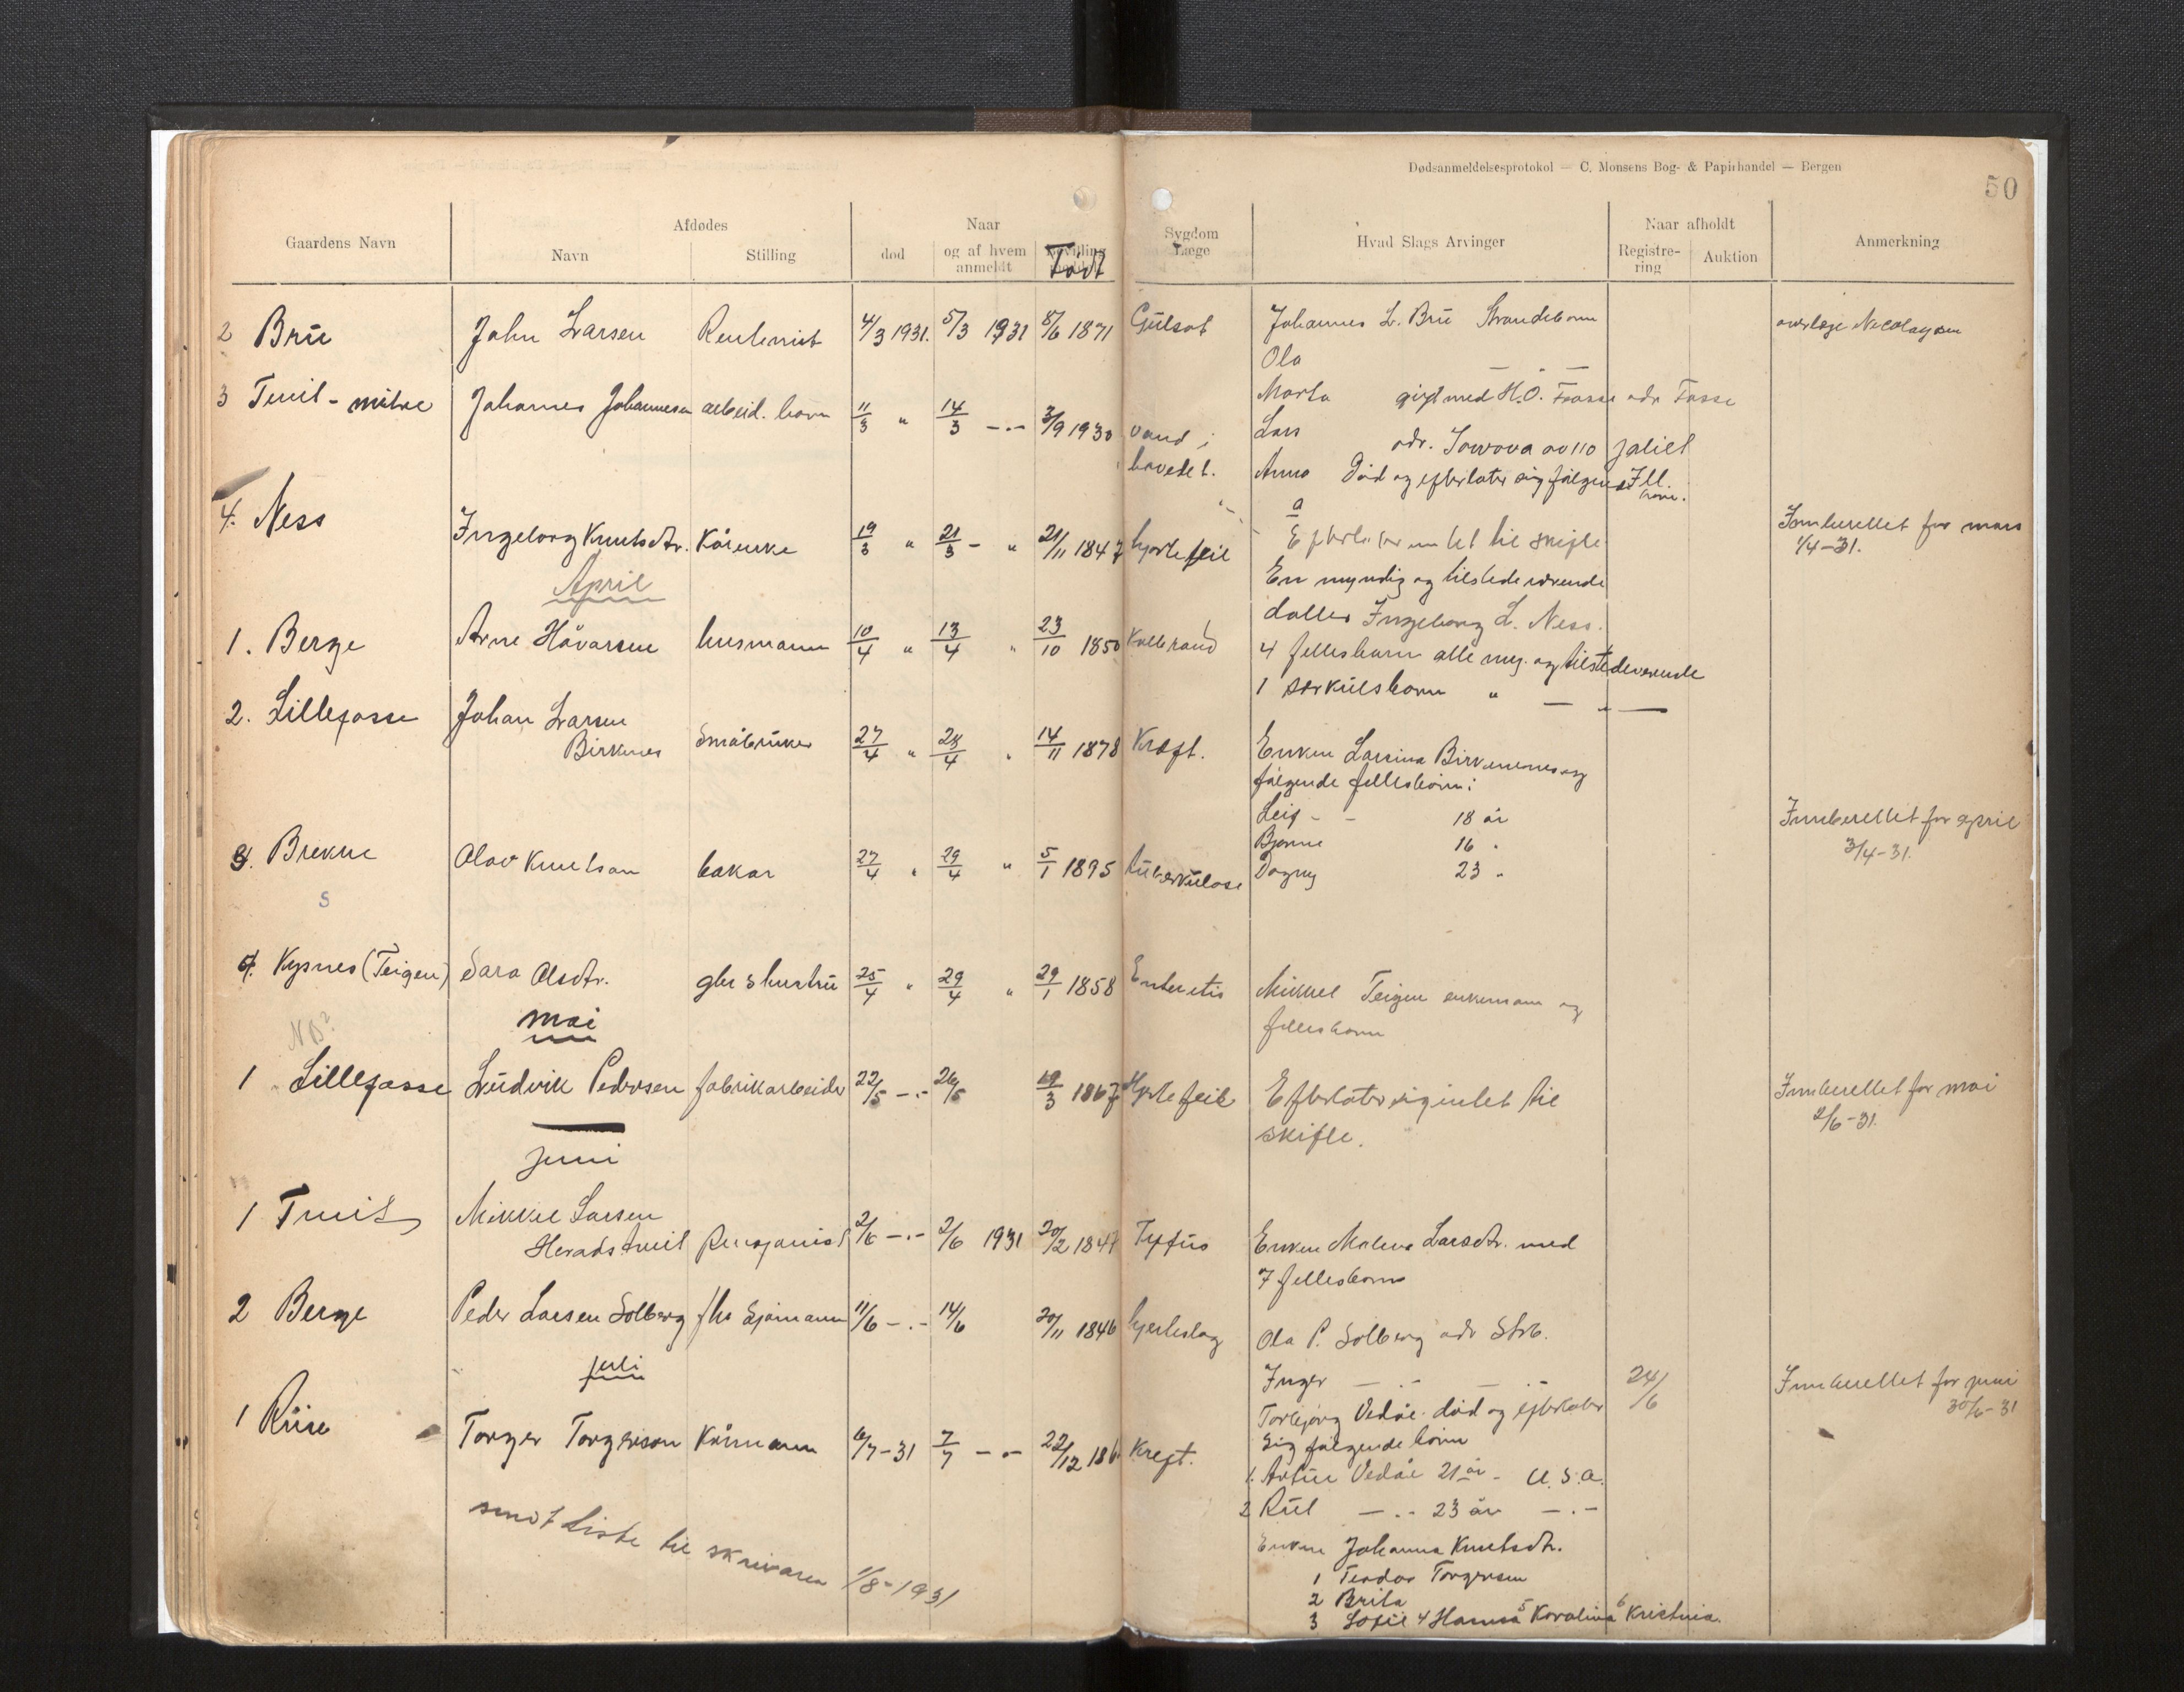 Dødsanmeldelsesprotokol — C. Monsens Bog- & Papirhandel — Bergen
50
Gaardens Navn
Afdødes
Navn
Stilling
Naar
død
og af hvem anmeldt
Født
Sygdom
Læge
Hvad Slags Arvinger
Naar afholdt
Registre-
ring
Auktion
Anmerkning
2 Brü John Larsen 4/3 1931. 5/3 1931 8/6 1871 Gülsot Johannes L. Brü Strandebarm
Ola — „ —
3 Tveit - mitre Johannes Johannesen arbeid. barn 11/3 „ 14/3 -„- 3/9 1930 vand i
hovedet.
Marta gift med H.O. Fosse adr Fosse
Lars adr. av 110 Joliet
Ill.
Anna Död og efterlater sig følgende
barn.
4. Ness Ingeborg Knutsdtr. Kårenke 19/3 „ 21/3 - „ 21/11 1847 hjertefeil
Efterlater intet til skifte
En myndig og tilstedeværende
datter Ingeborg L. Ness.
Innberettet for mars
1/4-31.
April
1. Berge Arne Håvarsen husmann 10/4 „ 13/4 „ 23/10 1850 Kolbrand
4 fellesbarn alle myg. og tilstedeverende
1 særkulsbarn „ — „ —
2. Lillefosse Johan Larsen
Birkenes Småbruker 27/4 „ 28/4 „ 14/11 1878 Kræft.
Enken Larsina Birkenes og
følgende fellesbarn:
Leif - - 18 år
Bjarne 16 „
Dagny 23 „
Innberettet for april
3/4-31.
3. Brekne Olav Knutson bakar 27/4 „ 29/4 „ 5/1 1895 tüberkülose
S
4. Kypnes (Teigen) Sara Olsdtr. gbr s hustrü 25/4 „ 29/4 „ 29/1 1858
Mikkel Teigen enkemann og
fellesbarn
NB?
mai
1 Lillefosse Lüdvik Pedersen fabrikarbeider 22/5 -„- 26/5 19/3 1867 Hjertefeil
Efterlater sig intet til
skifte.
Innberettet for mai
2/6-31.
juni
1 Tveit Mikkel Larsen
Heradstveit Pensjonist 2/6 -„- 2/6 1931 20/2 1847 Tyfüs
Enken Malena Larsdtr. med
7 fellesbarn
2 Berge Peder Larsen Solberg fhv Sjømann 11/6 -„- 14/6 20/11 1846 hjerteslag
Ola P. Solberg adr Strb.
Inger — „ — — „ —
Torbjørg Vedøe død og efterlater
sig følgende børn
1. Artür Vedøe 21 år - U.S.A.
2 Rüt — „ - 23 år — „ —
24/6
Innberettet for juni
30/6-31
juli
1 Riise Torger Torgerson Kårmann 6/7-31 7/7 -„- 22/12 186 Kreft.
Enken Johanna Knutsdtr.
1 Teodor Torgersen
2 Brita
3 Sofie 4 Hanna 5 Karolina 6 Kristina.
sendt Liste til skrivaren 1/8-1931